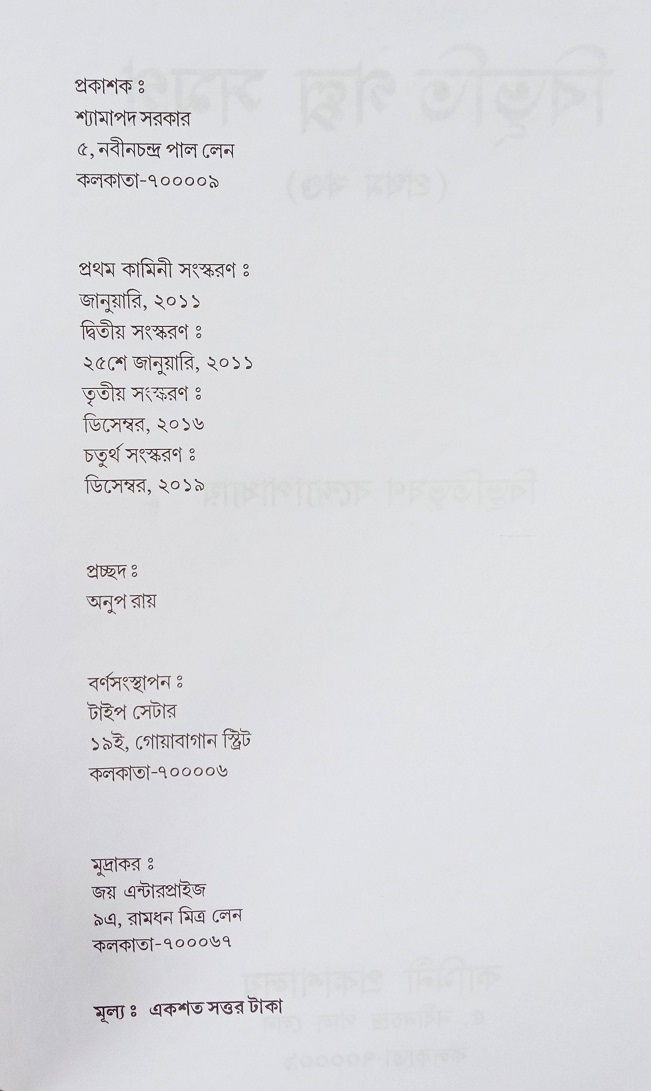 প্রকাশক ঃ
শ্যামাপদ সরকার
৫, নবীনচন্দ্র পাল লেন
কলকাতা-৭০০০০৯
প্রথম কামিনী সংস্করণ ঃ
জানুয়ারি, ২০১১
দ্বিতীয় সংস্করণ ঃ
২৫শে জানুয়ারি, ২০১১
তৃতীয় সংস্করণ ঃ
ডিসেম্বর, ২০১৬
চতুর্থ সংস্করণ ঃ
ডিসেম্বর, ২০১৯
প্রচ্ছদ ঃ
অনুপ রায়
বর্ণসংস্থাপন ঃ
টাইপ সেটার
১৯ই, গোয়াবাগান স্ট্রিট
কলকাতা-৭০০০০৬
মুদ্রাকর ঃ
জয় এন্টারপ্রাইজ
৯এ, রামধন মিত্র লেন
কলকাতা-৭০০০৬৭
মূল্য ঃ একশত সত্তর টাকা